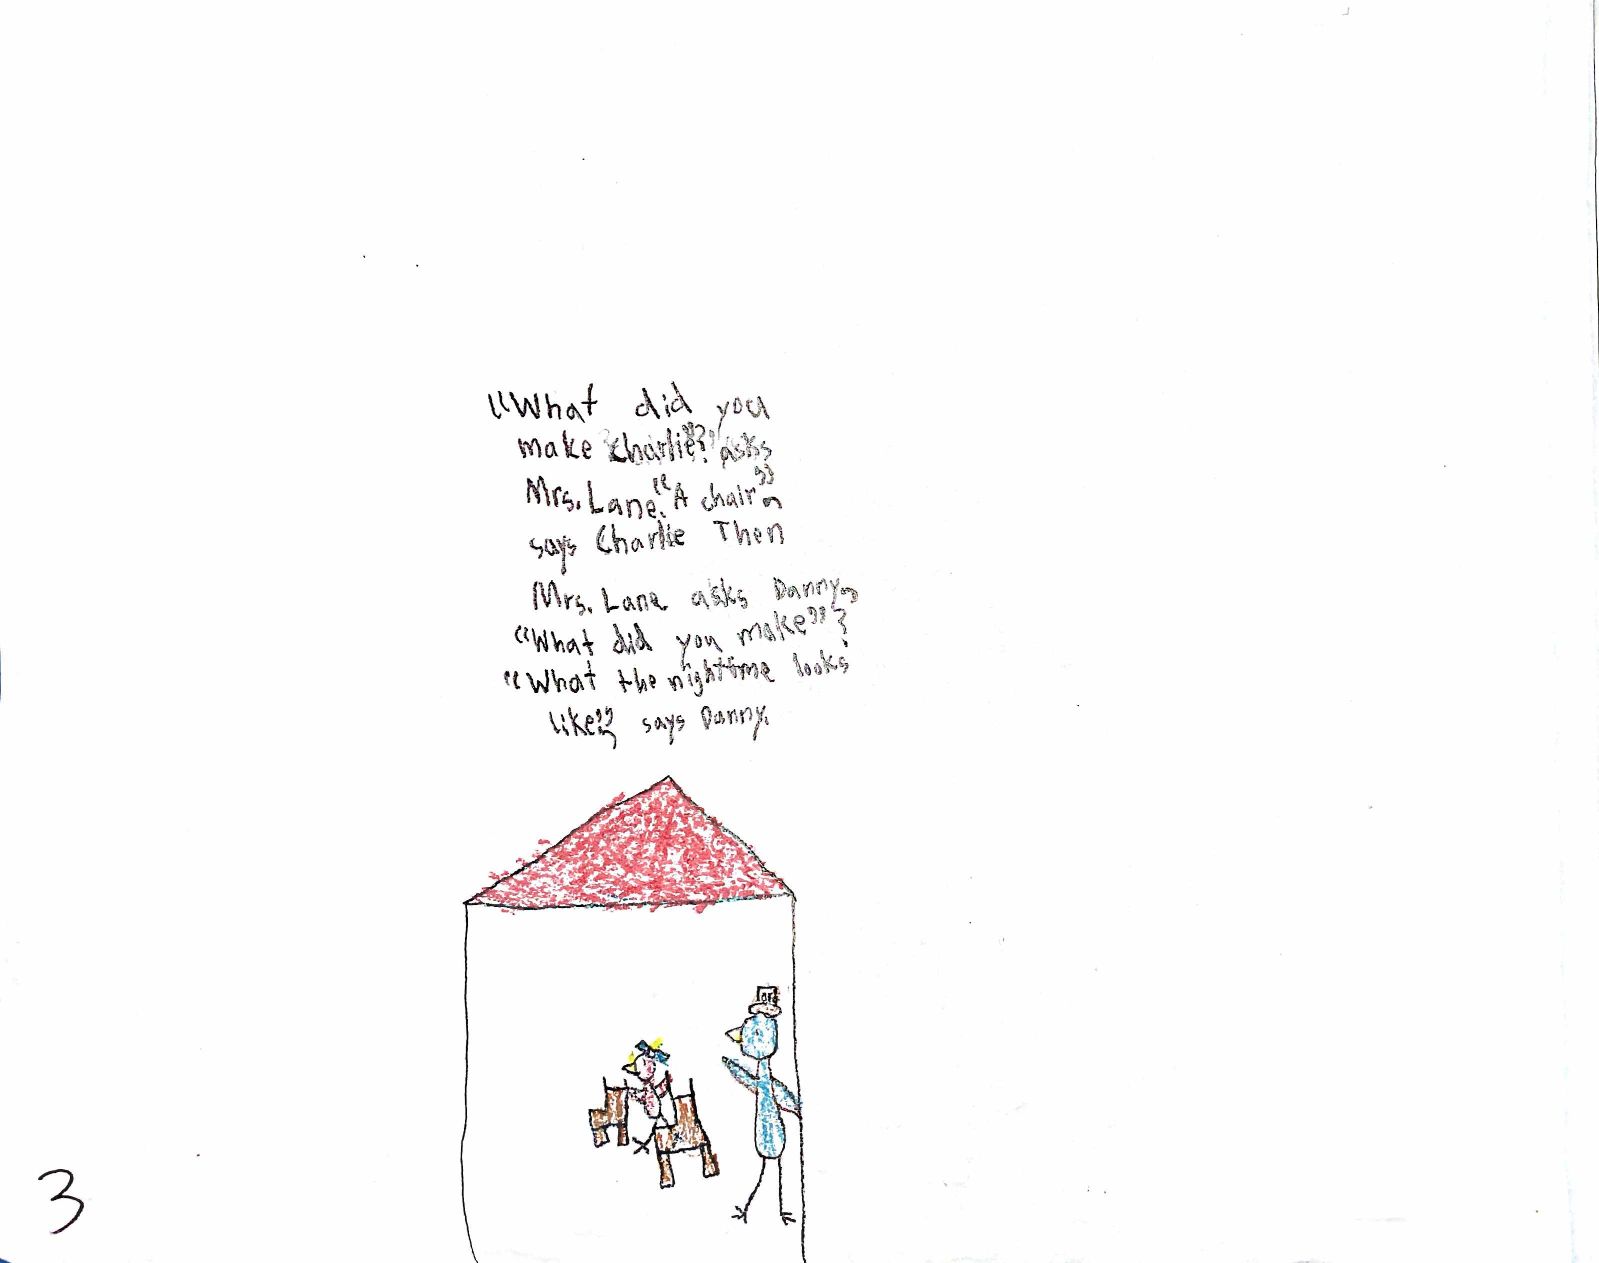 “What did you
make Charlie”? asks
Mrs. Lane. “A chair”,
says Charlie Then
Mrs. Lane asks Danny,
“What did you make”?
“What the nighttime looks
like”, says Danny.
3